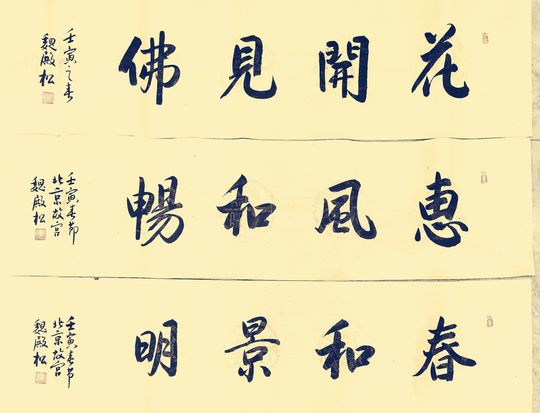 花開見佛
壬寅之春
魏殿松
惠風和暢
壬寅春節
北京故宮
魏殿松
春和景明
壬寅春節
北京故宮
魏殿松